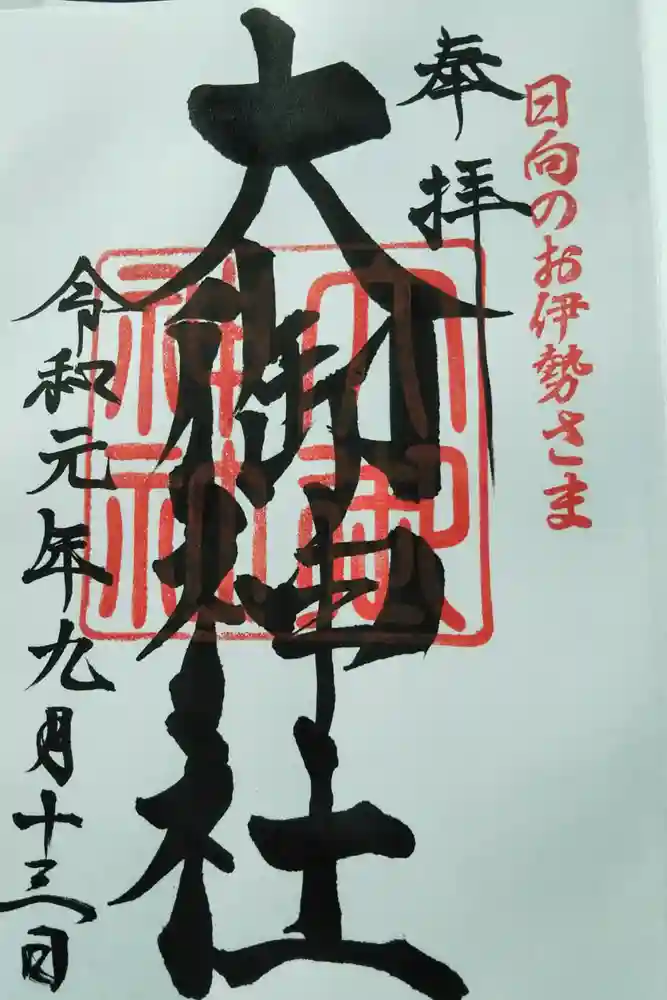 日向のお伊勢さま
奉拝
大御神社
大御神社
令和元年九月十三日